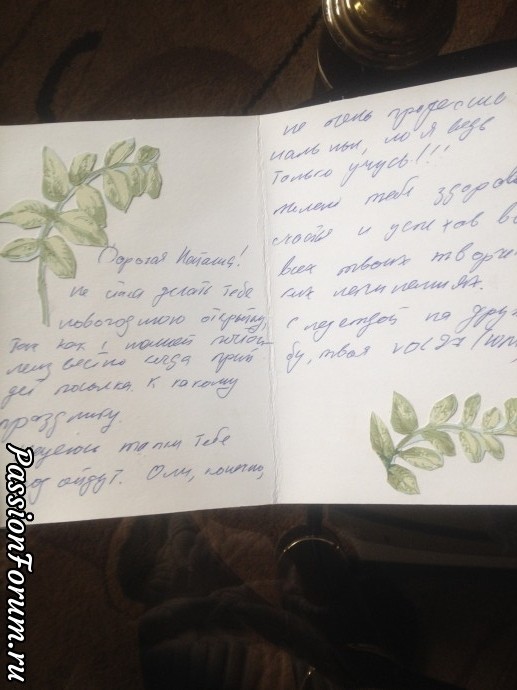 Дорогая Наташа!
Не стала делать тебе
новогоднюю открытку,
Так как с нашей почтой
неизвестно когда прий
дет посылка. К какому
празднику.
тапки Тебе
подойдут. Они, конечно,
не очень професcио
нальны, но я ведь
только учусь!!!
Желаю тебе здоров
счастья и успехов во
всех твоих творчес
ких начинаниях.
С надеждой на друж
бу, твоя
PassionForum.ru